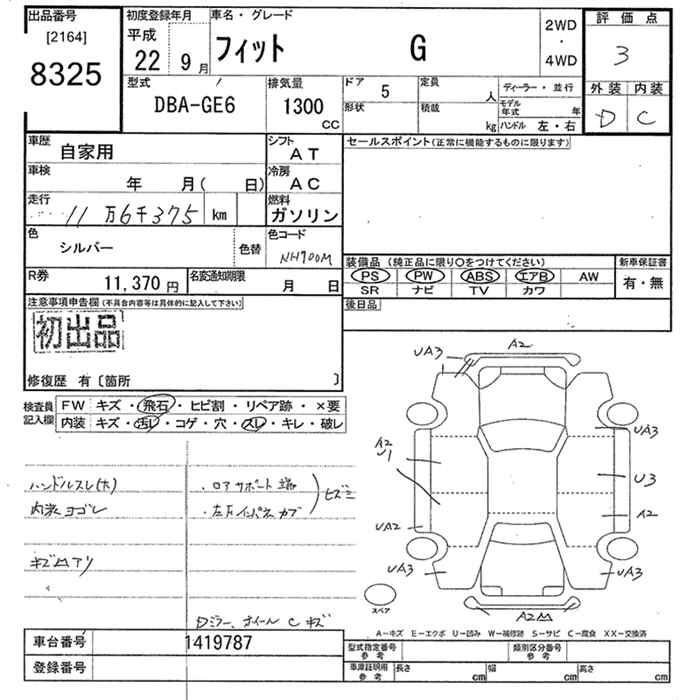 出品番号
[2164]
8325
初度登録年月
平成
22 9月
車名・グレード
フィット G
2WD
・
4WD
評価点
3
外装 内装
D C
型式
DBA-GE6
排気量
1300
CC
ドア
5
形状
定員
人
積載
kg
ディーラー・並行
モデル年式 年
ハンドル 左・右
車歴
自家用
車検
年 月( 日)
走行
11万6千375 km
色
シルバー
色替
シフト
AT
冷房
AC
燃料
ガソリン
色コード
NH700M
R券
11,370円
名変通知期限
月 日
セールスポイント(正常に機能するものに限ります)
装備品(純正品に限り○をつけてください)
PS PW ABS エアB AW
SR ナビ TV カワ
新車保証書
有・無
後日品
注意事項申告欄(不具合内容等は具体的に記入して下さい)
初出品
修復歴 有〔箇所 〕
検査員記入欄
FW キズ・飛石・ヒビ割・リペア跡・×要
内装 キズ・汚レ・コゲ・穴・スレ・キレ・破レ
ハンドルスレ(大)
内装ヨゴレ
ロアサポート
キズ凹アリ
Dミラー、ホイール C キズ
UA3
A2
UA3
A2
U1
U3
A2
UA2
UA3
UA3
A2凹
スペア
A-キズ E-エクボ U-凹み W-補修跡 S-サビ C-腐食 XX-交換済
車台番号
1419787
登録番号
型式指定番号
参考
類別区分番号
参考
車庫証明用
参考
長さ cm
幅 cm
高さ cm